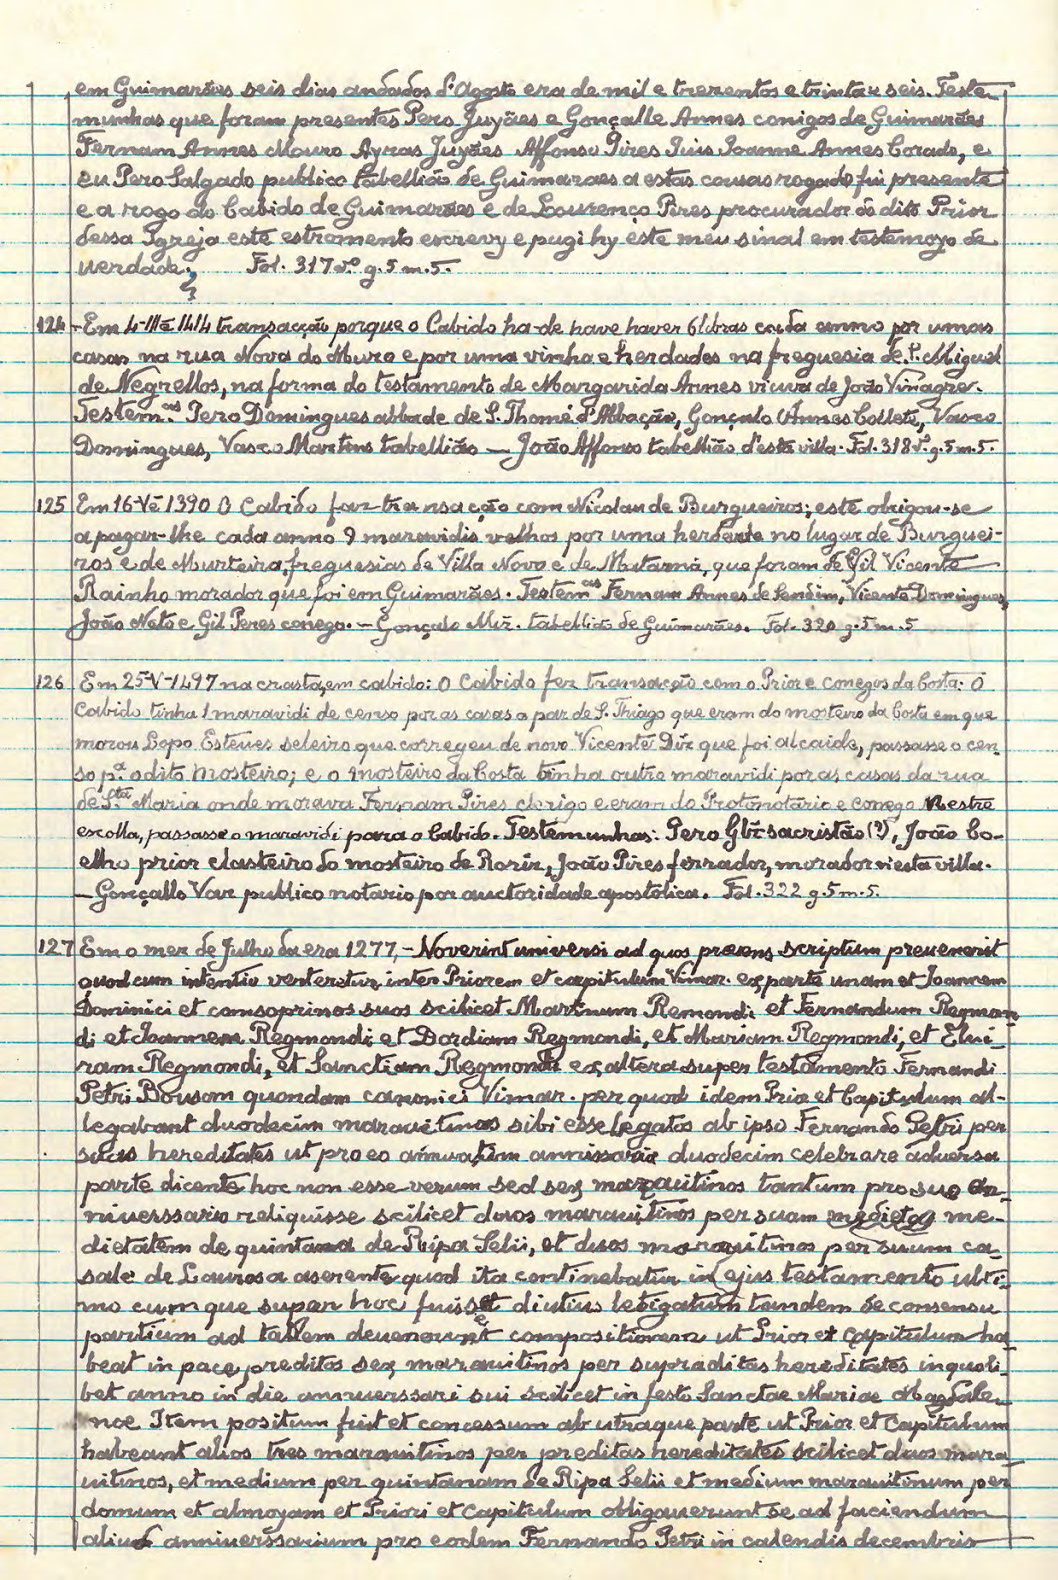 em Guimarães seis dias andados d'Agosto era de mil e trezentos e trinta e seis. Teste-
munhas que foram presentes Pero Juyães e Gonçalle Annes conigos de Guimarães
Fernam Annes Mouro Ayras Juyães Affonso Pires Juis Joanne Annes Corado, e
eu Pero Salgado publico tabellião de Guimaraes a estas cousas rogado fui presente
e a rogo do Cabido de Guimarães e de Lourenço Pires procurador do dito Prior
dessa Igreja este estromento escrevy e pugi hy este meu sinal em testemoyo de
verdade. Fol. 317 v.º g. 5 m. 5.
124 - Em 4-III-1414 transacção porque o Cabido ha-de have haver 6 libras cada anno por umas
casas na rua Nova do Muro e por uma vinha e herdades na freguesia de S. Miguel
de Negrellos, na forma do testamento de Margarida Annes viuva de João Vinagre.
Testem.as Pero Domingues abbade de S. Thomé d'Abbação, Gonçalo Annes Collete, Vasco
Domingues, Vasco Martins tabellião — João Affonso tabellião d'esta villa. Fol. 318 v.º g. 5 m. 5.
125 Em 16-V-1390 O Cabido faz transacção com Nicolau de Burgueiros; este obrigou-se
a pagar-lhe cada anno 9 maravidis velhos por uma herdade no lugar de Burguei-
ros e de Murteira, freguesias de Villa Nova e de Matamá, que foram de Gil Vicente
Rainho morador que foi em Guimarães. Testem.as Fernam Annes de Sendim, Vicente Domingues,
João Neto e Gil Peres conego. - Gonçalo Miz. tabellião de Guimarães. Fol. 320 g. 5 m. 5
126 Em 25-V-1497 na crasta, em cabido: O Cabido fez transacção com o Prior e conegos da Costa: O
Cabido tinha 1 maravidi de censo por as casas a par de S. Thiago que eram do mosteiro da Costa em que
morou Lopo Esteves seleiro que correged de novo Vicente Diz que foi alcaide, passasse o cen-
so p.ª o dito Mosteiro; e o mosteiro da Costa tinha outro maravidi por as casas da rua
de S.ta Maria onde morava Fernam Pires clerigo e eram do Protonotario e conego Mestre
escolla, passasse o maravidi para o Cabido. Testemunhas: Pero Glz sacristão (?), João Co-
elho prior clasteiro do mosteiro de Roriz, João Pires ferrador, morador n'esta villa.
- Gonçallo Vaz publico notario por auctoridade apostolica. Fol. 322 g. 5 m. 5.
127 Em o mez de Julho da era 1277, - Noverint universi ad quos presens scriptum prevenerit
quod cum intentio verteretur inter Priorem et capitulum Vimar. ex parte unam et Joannem
Dominici et consoprinos suos scilicet Martinum Remondi et Fernandum Regmon-
di et Joannem Regmondi et Dordiam Regmondi, et Mariam Regmondi, et Elvi-
ram Regmondi, et Sanctiam Regmondi ex altera super testamento Fernandi
Petri Bousom quondam canonici Vimar. per quod idem Prior et Capitulum al-
legabant duodecim marauitinos sibi esse legatos ab ipso Fernando Petri per
suas hereditates ut pro eo annuatim annissaria duodecim celebrare adversa
parte dicente hoc non esse verum sed sex marauitinos tantum pro suo an-
niuerssario reliquisse scilicet duos marauitinos per suam me-
dietatem de quintana de Ripa Selii, et duos marauitinos per suum ca-
sale de Laurosa aserente quod ita continebatur in ejus testamento ulti-
mo cumque super hoc fuisset diutius letigatum tandem de consensu
partium ad talem devenerunt compositionem ut Prior et Capitulum ha-
beat in pace preditos sex marauitinos per supraditas hereditates in quoli-
bet anno in die anniuerssari sui scilicet in festo Sanctae Mariae Magdale-
nae. Item positium fuit et concessum ab utraque parte ut Prior et Capitulum
habeant alios tres marauitinos per preditas hereditates scilicet duos mara-
uitinos, et medium per quintanam de Ripa Selii et medium marauitinum per
domum et almoyam et Priori et Capitulum obligauerunt se ad faciendum
aliud anniuerssarium pro eodem Fernando Petri in calendis decembris